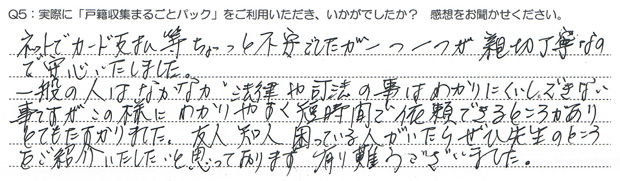 Q5：実際に「戸籍収集まるごとパック」をご利用いただき、いかがでしたか？ 感想をお聞かせください。
ネットでカード支払い等ちょっと不安でしたが一つ一つが親切丁寧なの
で安心いたしました。
一般の人はなかなか法律や司法の事はわかりにくいしできない
事ですがこの様にわかりやすく短時間で依頼できるところがあり
とてもたすかりました。友人知人困っている人がいたらぜひ先生のところ
をご紹介いたしたいと思っております 有り難うございました。